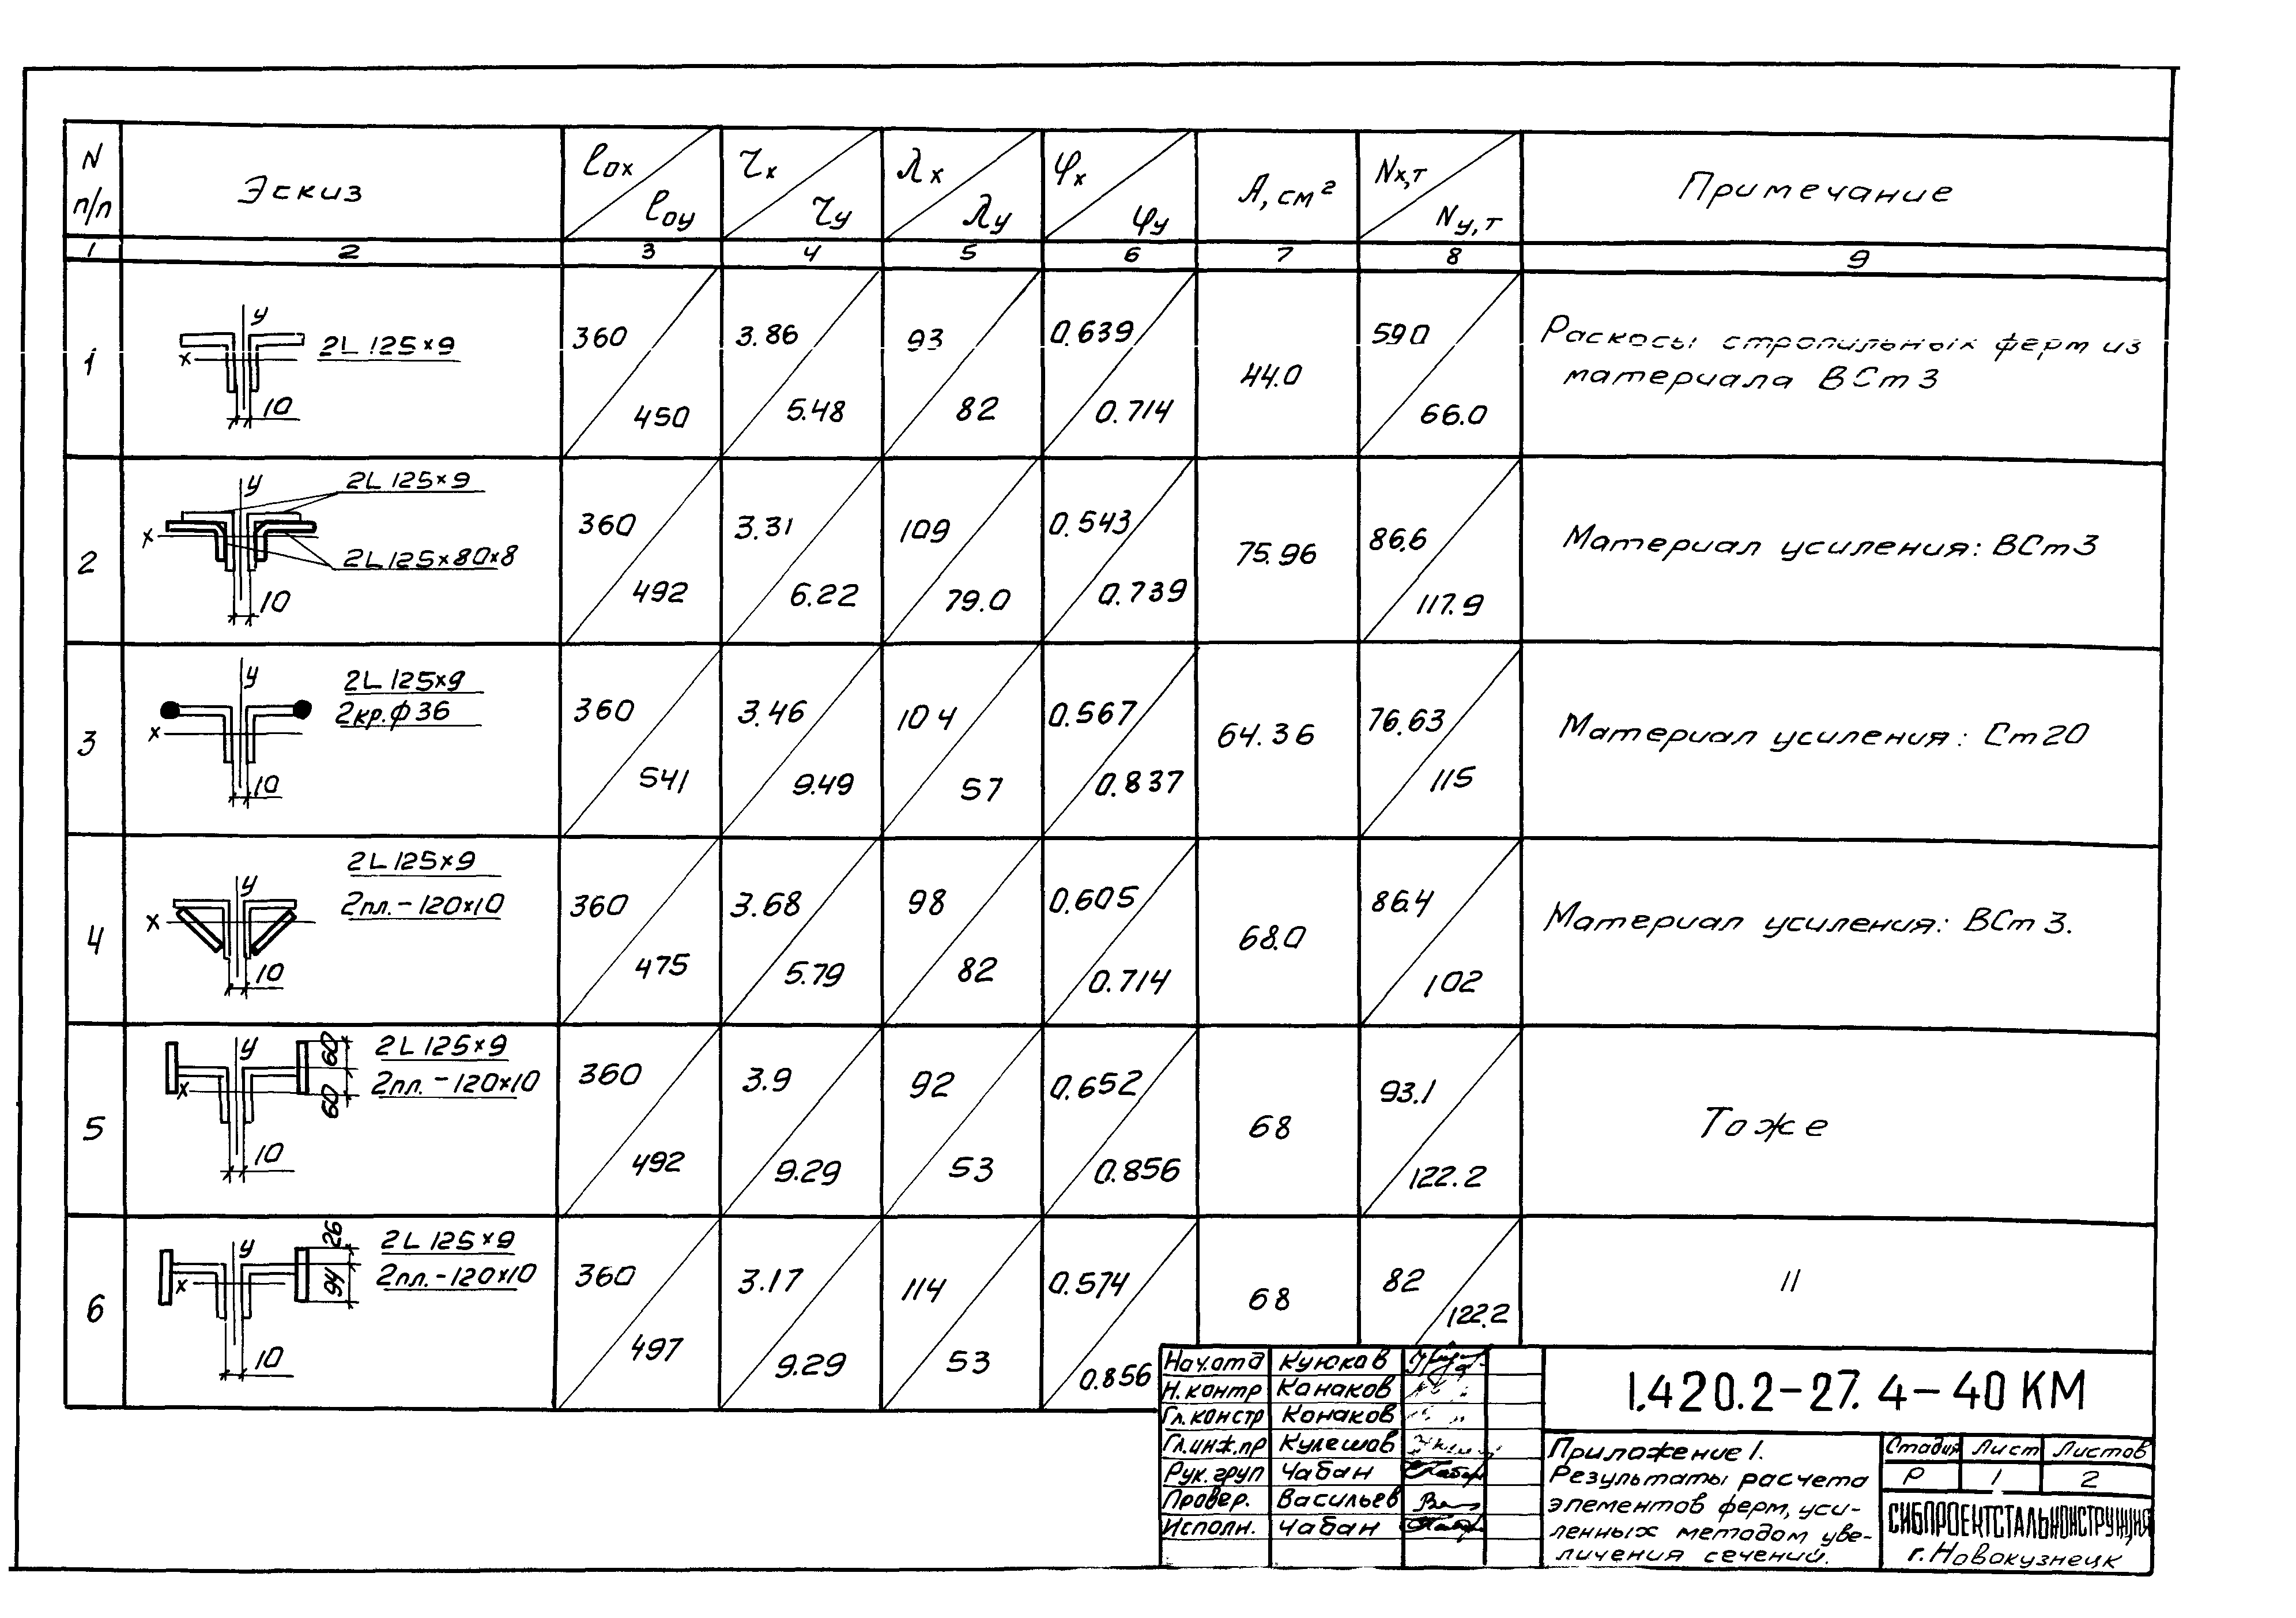 N п/п Эскиз lох lоу ζх ζу λх λу φх φу А, см² Nх,т Nу,т Примечание
1 2 3 4 5 6 7 8 9
1 у х 2L 125×9 10 360 450 3.86 5.48 93 82 0.639 0.714 44.0 590 66.0 Раскосы стропильных ферм из
материала ВСт3
2 у х 2L 125×9 2L 125×80×8 10 360 492 3.31 6.22 109 79.0 0.543 0.739 75.96 86.6 117.9 Материал усиления: ВСт3
3 у х 2L 125×9
2кр.ф36 10 360 541 3.46 9.49 104 57 0.567 0.837 64.36 76.63 115 Материал усиления: Ст20
4 у х 2L 125×9
2пл.-120×10 10 360 475 3.68 5.79 98 82 0.605 0.714 68.0 86.4 102 Материал усиления: ВСт3.
5 у х 60 60 2L 125×9
2пл.-120×10 10 360 492 3.9 9.29 92 53 0.652 0.856 68 93.1 122.2 Тоже
6 у х 26 94 2L 125×9
2пл.-120×10 10 360 497 3.17 9.29 114 53 0.574 0.856 68 82 122.2 11
Нач.отд Куюков
Н.контр Канаков
Гл.констр Конаков
Гл.инж.пр Кулешов
Рук.груп Чабан
Провер. Васильев
Исполн. Чабан
1.420.2-27.4-40 КМ
Приложение 1.
Результаты расчета
элементов ферм, уси-
ленных методом уве-
личения сечений.
Стадия Лист Листов
Р 1 2
СИБПРОЕКТСТАЛЬКОНСТРУКЦИЯ
г. Новокузнецк